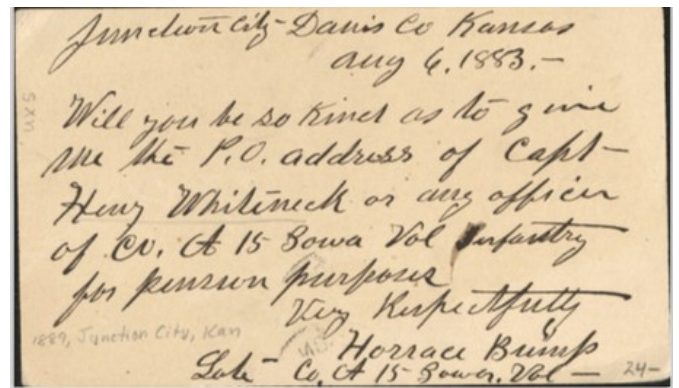 Junction City - Davis Co Kansas
Aug 6, 1883. -
Will you be so kind as to give
me the P.O. address of Capt -
Henry Whiteneck or any officer
of Co. A 15 Iowa Vol Infantry
for pension purposes
Very Respectfully
Horrace Bump
Late Co. A 15 Iowa. Vol -
1889, Junction City, Kan
24-